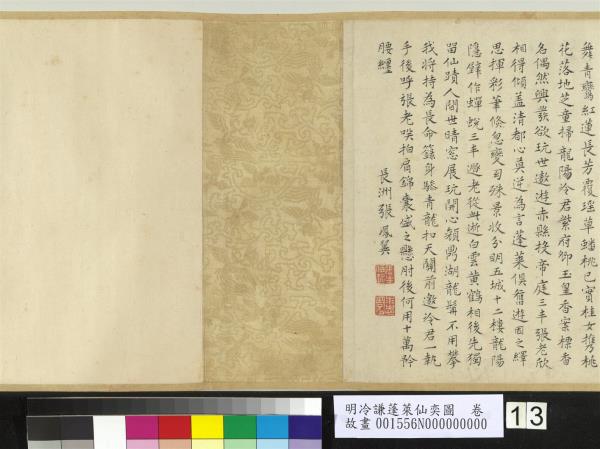 舞青鸞紅蓮長芳覆瑶草蟠桃已實桂女携桃
花落地芝童掃龍陽冷君紫府卿玉皇香案標香
名偶然興發欲玩世遨遊赤縣投帝庭三丰張老欣
相得傾蓋清都心莫逆為言蓬萊俱舊遊因之繹
思揮彩筆倏忽變幻殊景收分明五城十二樓龍陽
隱鋒作蟬蛻三丰遯老從此逝白雲黄鶴相後先獨
留仙蹟人間世晴窓展玩開心顏鼎湖龍髯不用攀
我将持為長命籙身騎青龍扣天關前邀冷君一執
手後呼張老笑拍肩錦囊盛之懸肘後何用十萬矜
腰纏
長洲張鳳翼
明冷謙蓬萊仙奕圖 卷
故畫 001556N000000000
13